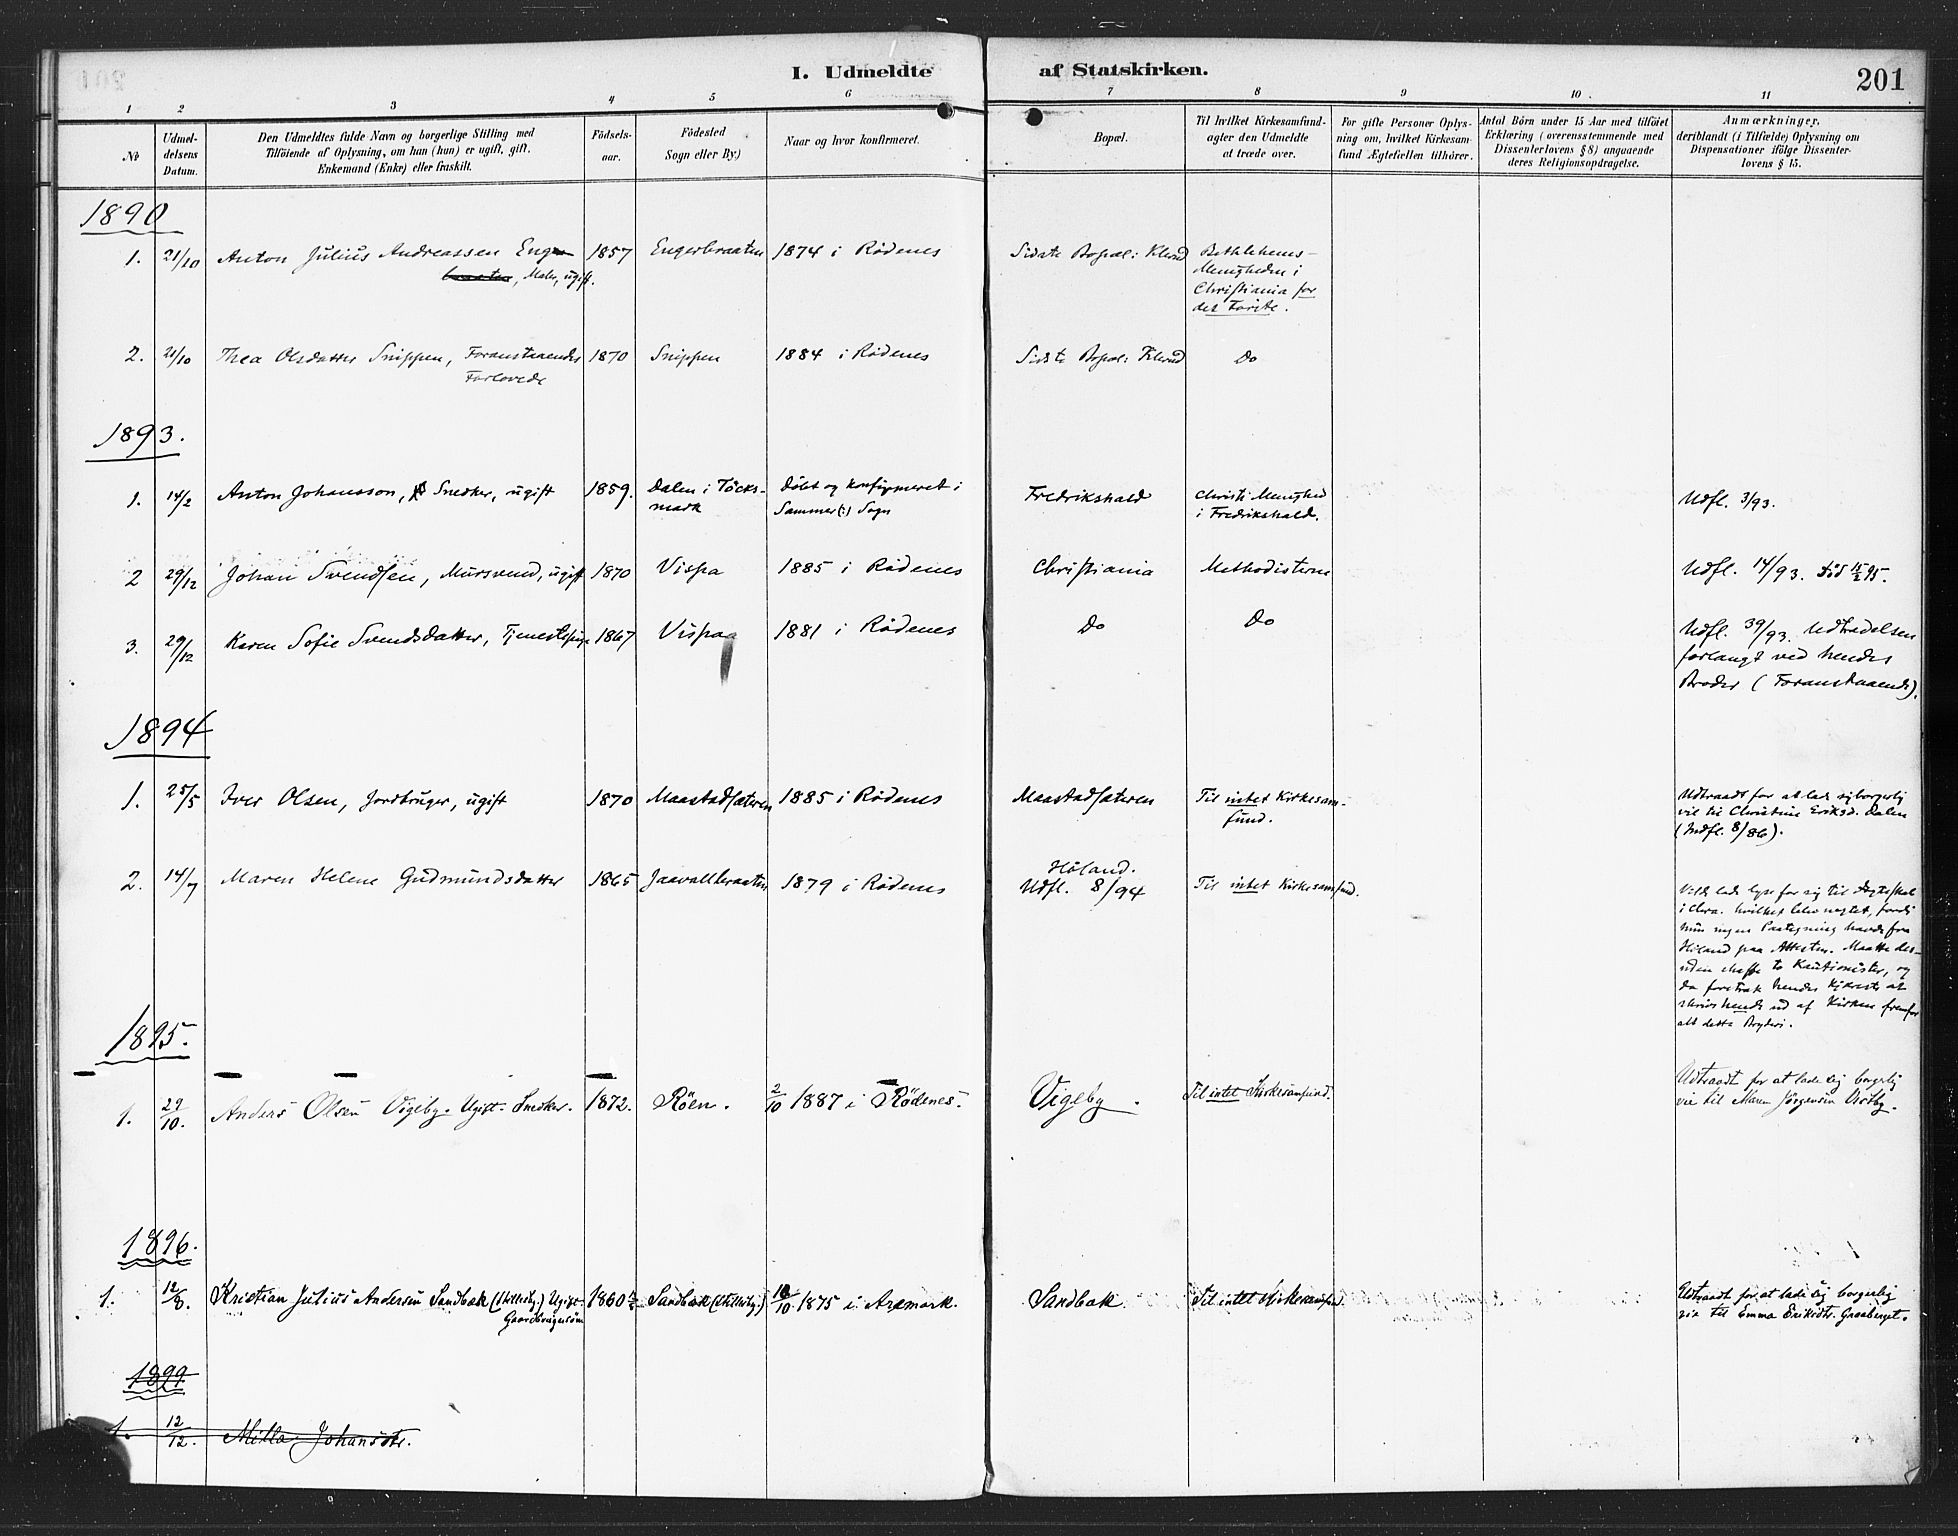 I. Udmeldte af Statskirken.
201
1 2 3 4 5 6 7 8 9 10 11
No
Udmel-
delsens
Datum.
Den Udmeldtes fulde Navn og borgerlige Stilling med
Tilföiende af Oplysning, om han (hun) er ugift, gift,
Enkemand (Enke) eller fraskilt.
Födsels-
aar.
Födested
Sogn eller By.)
Naar og hvor konfirmeret.
Bopæl.
Til hvilket Kirkesamfund-
agter den Udmeldte
at træde over.
For gifte Personer Oplys-
ning om, hvilket Kirkesam-
fund Ægtefællen tilhörer.
Antal Börn under 15 Aar med tilföiet
Erklæring (overensstemmende med
Dissenterlovens § 8) angaaende
deres Religionsopdragelse.
Anmærkninger,
deriblandt (i Tilfælde) Oplysning om
Dispensationer ifölge Dissenter-
lovens § 15.
1890
1. 21/10 Anton Julius Andreassen Enge
braaten, Maler, ugift.
1857 Engerbraaten 1874 i Rødenes
Sidste Bopæl: Klerud
Bethlehems-
Menigheden i
Christiania for
det Første.
2. 21/10 Thea Olsdatter Snippen, Foranstaaendes
Forlovede
1870 Snippen 1884 i Rødenes
Sidste Bopæl: Klerud Do
1893.
1. 14/2 Anton Johansson, Snedker, ugift 1859.
Dalen i Töcks-
mark
Døbt og konfirmeret i
Sammer(?) Sogn
Fredrikshald
Christi Menighed
i Fredrikshald.
Udfl. 3/93.
2 29/12 Johan Svendsen, Mursvend, ugift 1870 Vispa 1885 i Rødenes
Christiania Methodisterne Udfl. 14/93. Død 15/2 95.
3. 29/12 Karen Sofie Svendsdatter, Tjenestepige 1867 Vispaa 1881 i Rødenes
Do Do
Udfl. 39/93. Udtrædelsen
forlangt ved hendes
Broder (Foranstaaende).
1894
1. 25/5 Iver Olsen, Jordbruger, ugift 1870 Maastadsæteren 1885 i Rødenes
Maastadsæteren
Til intet Kirkesam-
fund.
Udtraadt for at lade sig borgerlig
vie til Christine Eriksd. Dalen
(Indfl. 8/86).
2. 14/7 Maren Helene Gudmundsdatter 1865 Jaavallbraaten 1879 i Rødenes
Høland.
Udfl. 8/94
Til intet Kirkesamfund.
Vilde lade lyse for sig til Ægteskab
i Chra. hvilket blev negtet, fordi
hun ingen Paategning havde fra
Høland paa Attesten. Maatte des-
uden skaffe to Kautionister, og
da foretrak hendes Kjæreste at
skrive hende ud af Kirken fremfor
alt dette Bryderi.
1895.
1. 29/10. Anders Olsen Vigeby. Ugift. Snedker. 1872. Röen. 2/10 1887 i Rödenes.
Vigeby. Til intet Kirkesamfund.
Udtraadt for at lade sig borgerlig
vie til Maren Jörgensen Ustby.
1896.
1. 12/8. Kristian Julius Andersen Sandbæk (Skillerby.) Ugift.
Gaardbrugersön
1860 Sandbæk (Skillerby.) 10/10 1875 i Aremark.
Sandbæk Til intet Kirkesamfund.
Udtraadt for at lade sig borgerlig
vie til Emma Eriksdtr. Graaberget.
1899
1. 12/12. Milla Johansdtr.